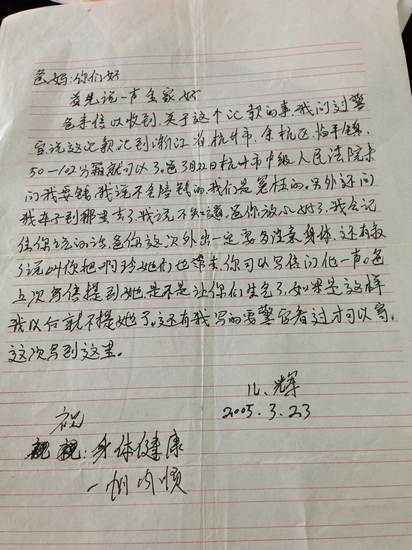 爸妈:你们好
首先说一声全家好
爸来信以收到,关于这个汇款的事,我问过警
官说这次款汇到浙江省杭州市,余杭区,临平镇,
50-102分箱就可以了。爸3月22日杭州市中级人民法院来
问我要钱,我说不会赔钱的,我们是冤枉的。另外还问
我车子到那里去了,我说不知道,爸你放心好了,我会记
住你说的话,爸你这次外出一定要多注意身体,还有
了说叫你把啊玲她们也带来,你可以写信问他一声。爸
上次写信提到她是不是让你们生气了,如果是这样
我以后就不提她了。还有我写的需警官看过才可以寄,
这次写到这里。
儿:辉
2005.3.23
祝
祝:身体健康
一帆风顺